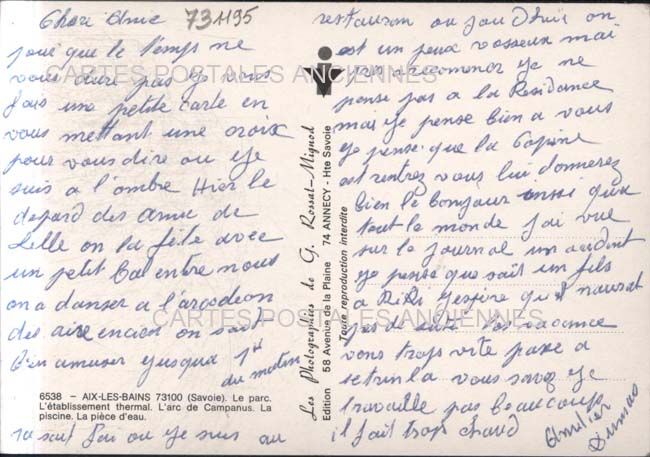 Cheri Ame 731195
pour que le temps ne
vous dure pas je vous
fais une petite carte en
vous mettant une croix
pour vous dire ou je
suis a l'ombre Hier le
depard des amu de
Lelle on la fete avec
un petit bal entre nous
on a danser a l'arcodeon
des aire encien on sait
bien amuser jusqua 1H
du matin
6538 - AIX-LES-BAINS 73100 (Savoie). Le parc.
L'établissement thermal. L'arc de Campanus. La
piscine. La pièce d'eau.
sa sait fou ou je suis au
Les Photographies de G. Rossat-Mignod
Edition 58 Avenue de la Plaine 74 ANNECY - Hte Savoie
Toute reproduction interdite
restauron ou jourd'huit on
est un peux vaseux mai
tres recommor je ne
pense pas a la Residance
mai je pense bien a vous
je pense que la Copine
est rentrez vous lui donnerez
bien le bonjour ausi qua
tout le monde j'ai vue
sur le journal un acident
je pense que sait un fils
a RiRi j'espere qu'il n'aurat
pas de suite les vacance
vons trops vite passe a
setrinla vous savez je
travaille pas beaucoup
il fait trop chaud
Dumas
CARTES POSTALES ANCIENNES
CARTES POSTALES ANCIENNES